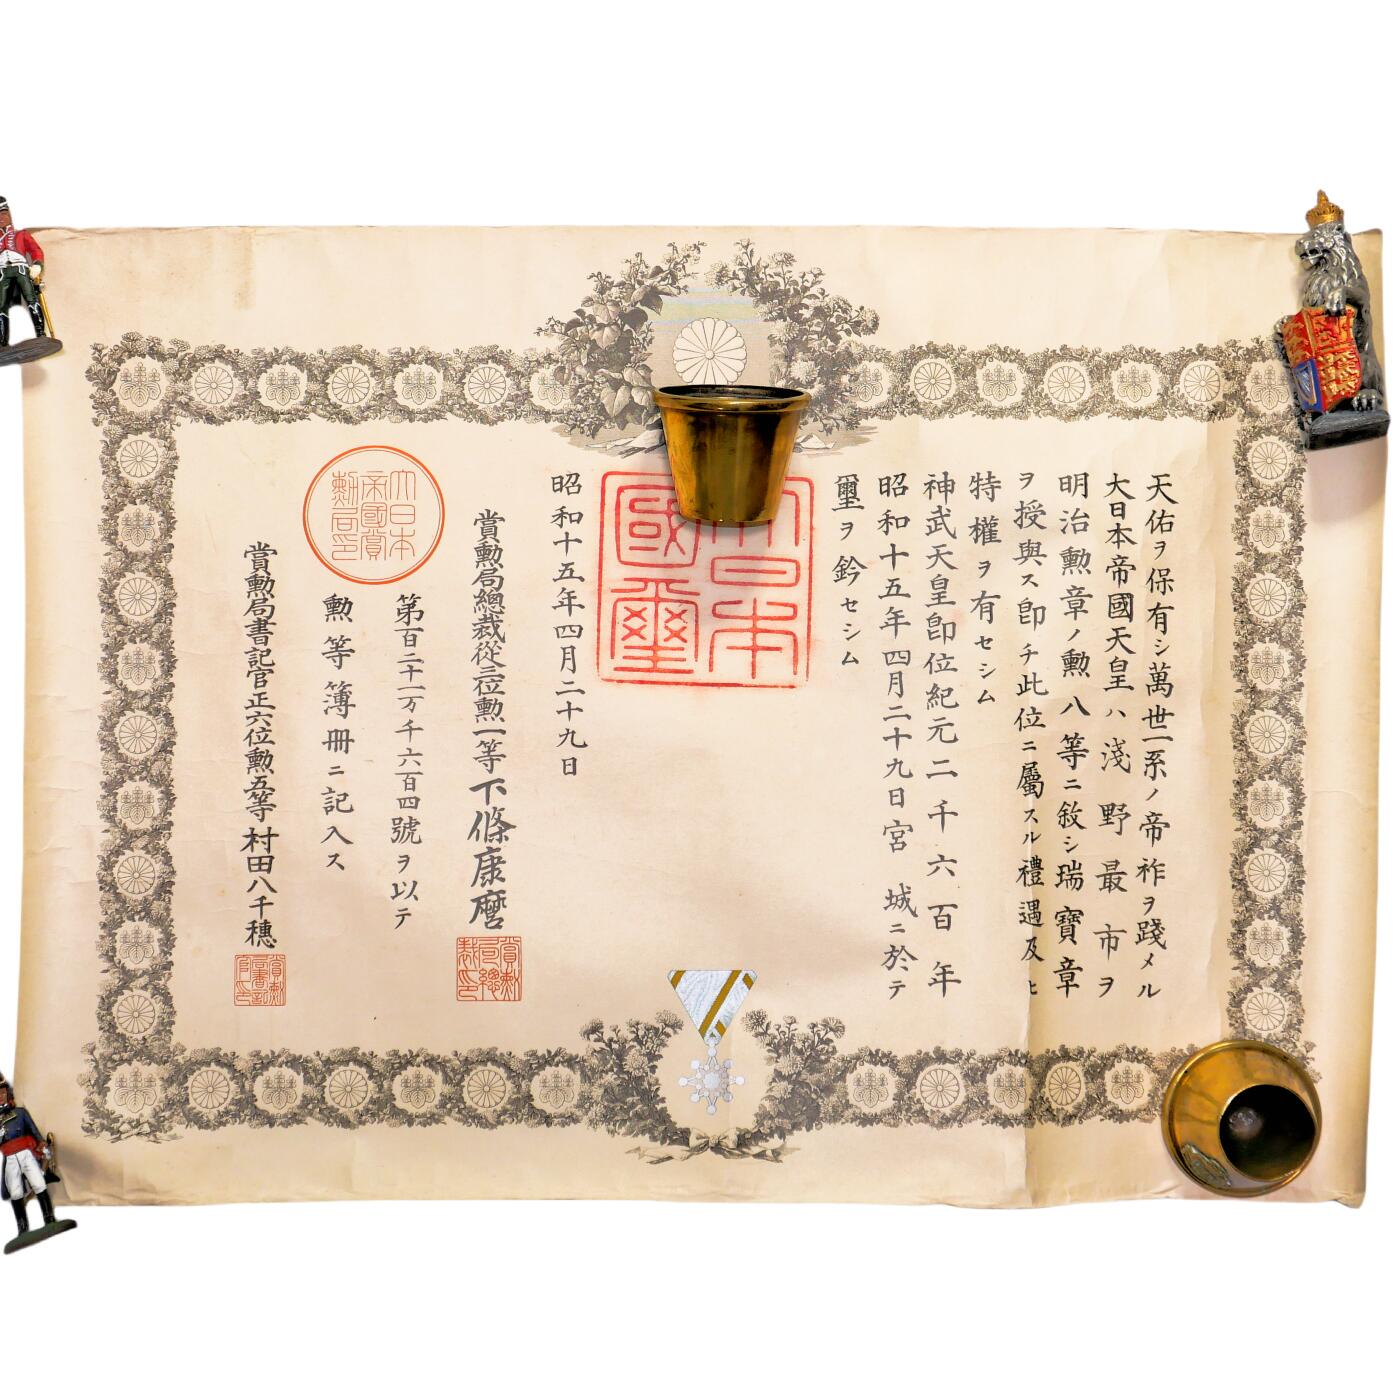 天佑ヲ保有シ萬世一系ノ帝祚ヲ踐メル
大日本帝國天皇ハ淺野最市ヲ
明治勲章ノ勲八等ニ敘シ瑞寶章
ヲ授與ス卽チ此位ニ屬スル禮遇及ヒ
特權ヲ有セシム
神武天皇卽位紀元二千六百年
昭和十五年四月二十九日宮城ニ於テ
璽ヲ鈐セシム
日本
國璽
昭和十五年四月二十九日
賞勲局總裁從三位勲一等下條康麿
賞勲
局總
裁印
第百二十一万千六百四號ヲ以テ
勲等簿冊ニ記入ス
大日本
帝國賞
勲局印
賞勲局書記官正六位勲五等村田八千穗
賞勲
局書記
官印